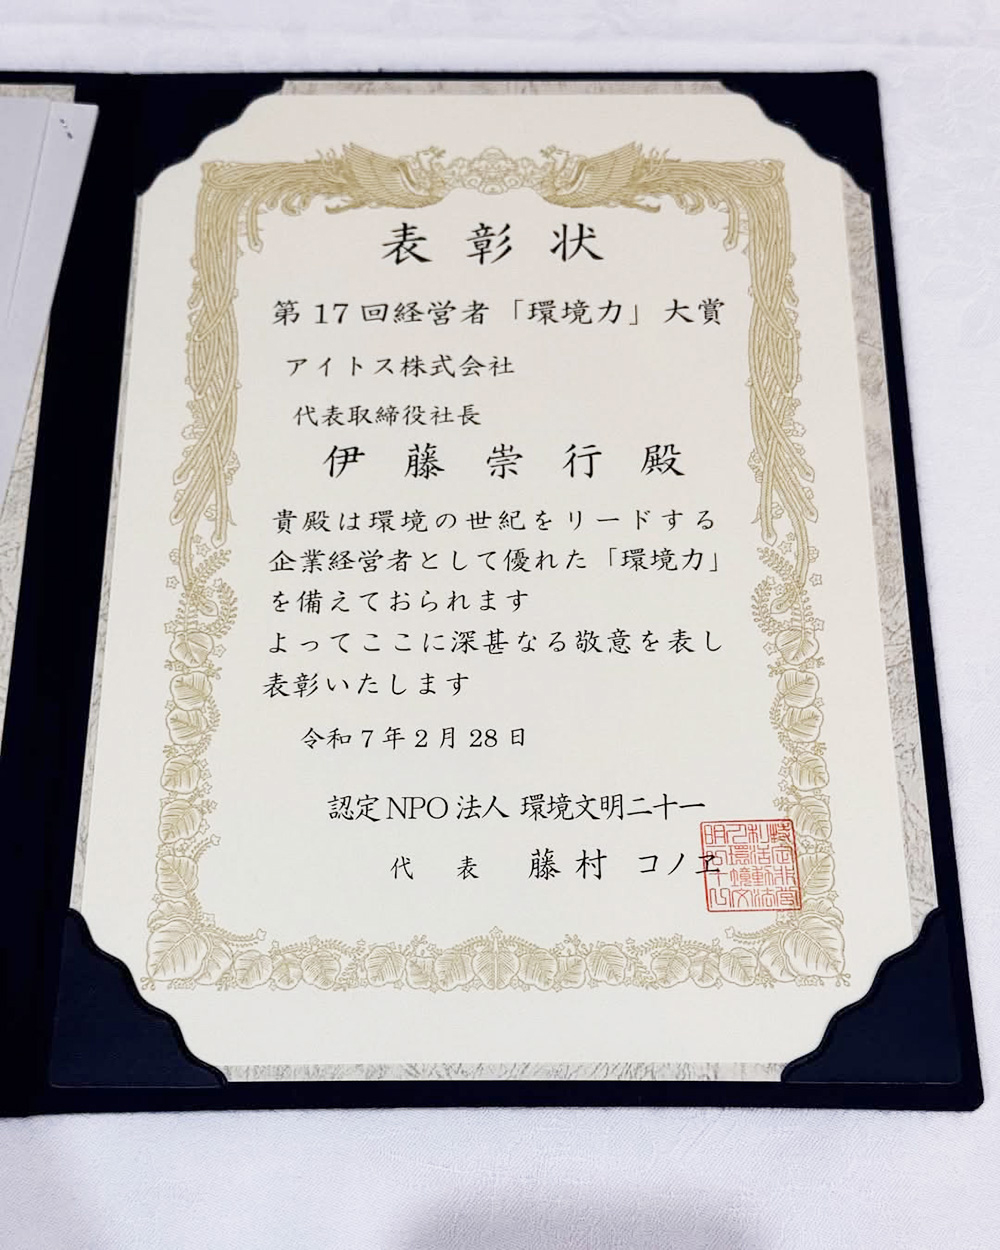 表彰状
第17回経営者「環境力」大賞
アイトス株式会社
代表取締役社長
伊藤崇行殿
貴殿は環境の世紀をリードする
企業経営者として優れた「環境力」
を備えておられます
よってここに深甚なる敬意を表し
表彰いたします
令和7年2月28日
認定NPO法人 環境文明二十一
代表 藤村 コノヱ